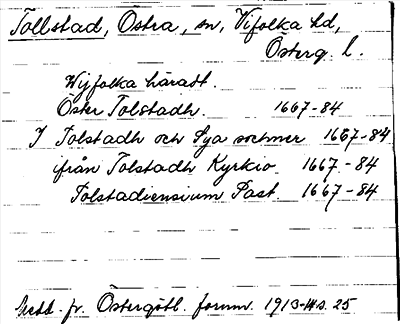 Tollstad, Östra, sn, Vifolka hd,
Österg. l.
Wijfolka häradt.
Öster Tolstadh. 1667-84
I Tolstadh och Sya sochner 1667-84
ifrån Tolstadh Kyrkio 1667-84
Tolstadiensium Past. 1667-84
Medd. fr. Östergötl. fornm. 1913-14 s. 25